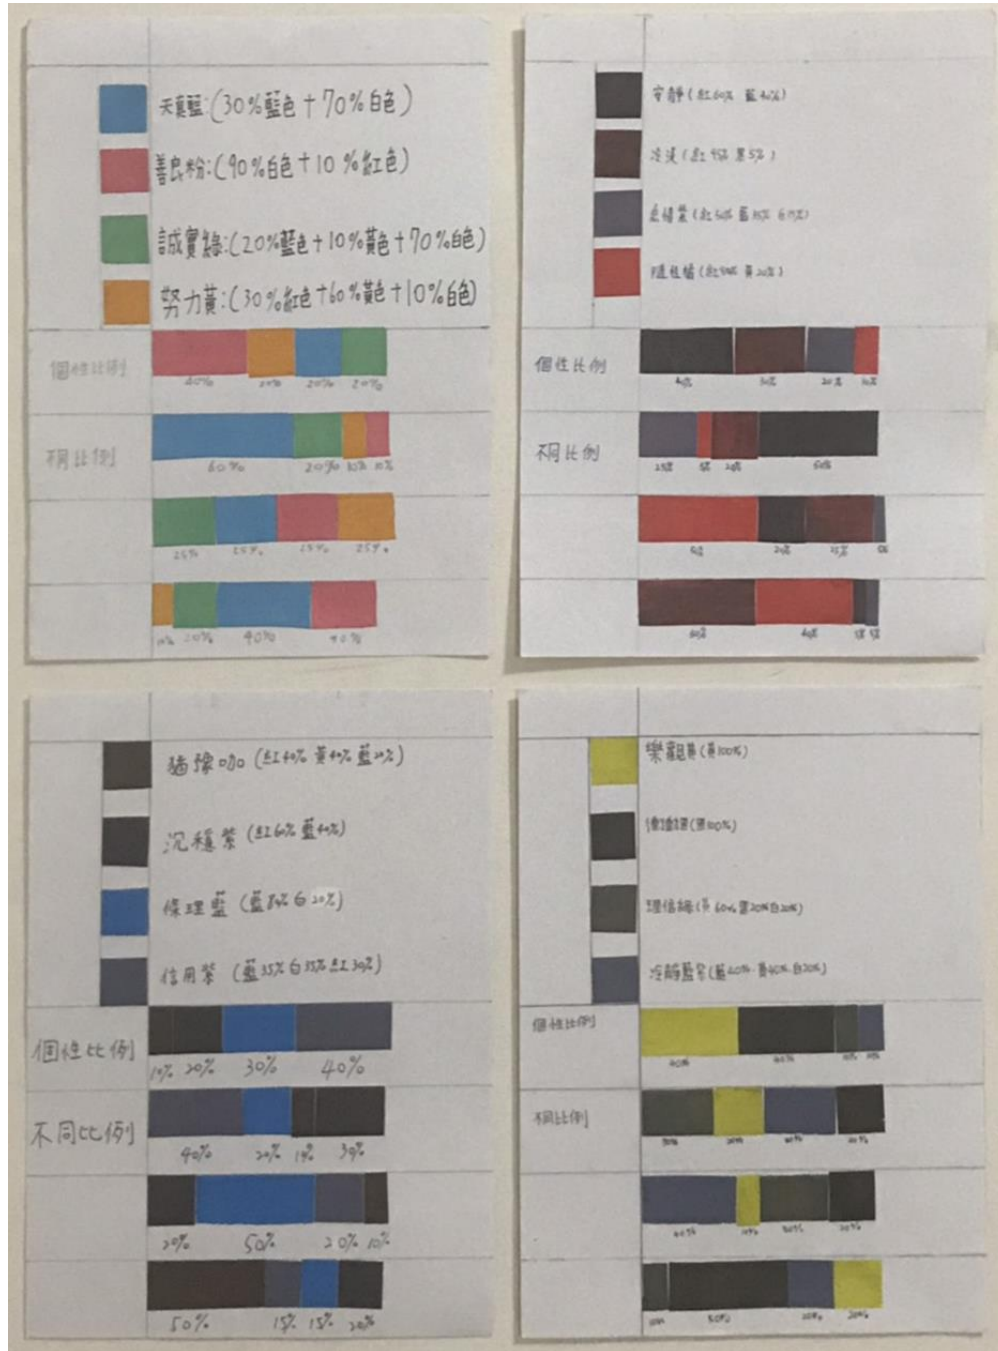 天真藍:(30%藍色+70%白色)
善良粉:(90%白色+10%紅色)
誠實綠:(20%藍色+10%黃色+70%白色)
努力黃:(30%紅色+60%黃色+10%白色)
個性比例
40% 20% 20% 20%
不同比例
60% 20% 10% 10%
25% 25% 25% 25%
10% 20% 40% 40%
安靜(紅60% 藍40%)
冷漠(紅95% 黑5%)
(紅50% 藍35% 白15%)
隨和橘(紅80% 黃20%)
個性比例
40% 30% 20% 10%
不同比例
25% 5% 20% 50%
50% 20% 25% 5%
50% 40% 5% 5%
猶豫咖(紅40% 黃40% 藍20%)
沉穩紫(紅60% 藍40%)
條理藍(藍80% 白20%)
信用紫(藍35% 白35% 紅30%)
個性比例
10% 20% 30% 40%
不同比例
40% 20% 10% 30%
20% 50% 20% 10%
50% 15% 15% 20%
樂觀黃(黃100%)
衝動黑(黑100%)
理信綠(黃60% 黑20% 白20%)
冷靜藍紫(藍40% 黃40% 白20%)
個性比例
40% 40% 10% 10%
不同比例
30% 20% 30% 20%
40% 10% 30% 20%
10% 50% 20% 20%